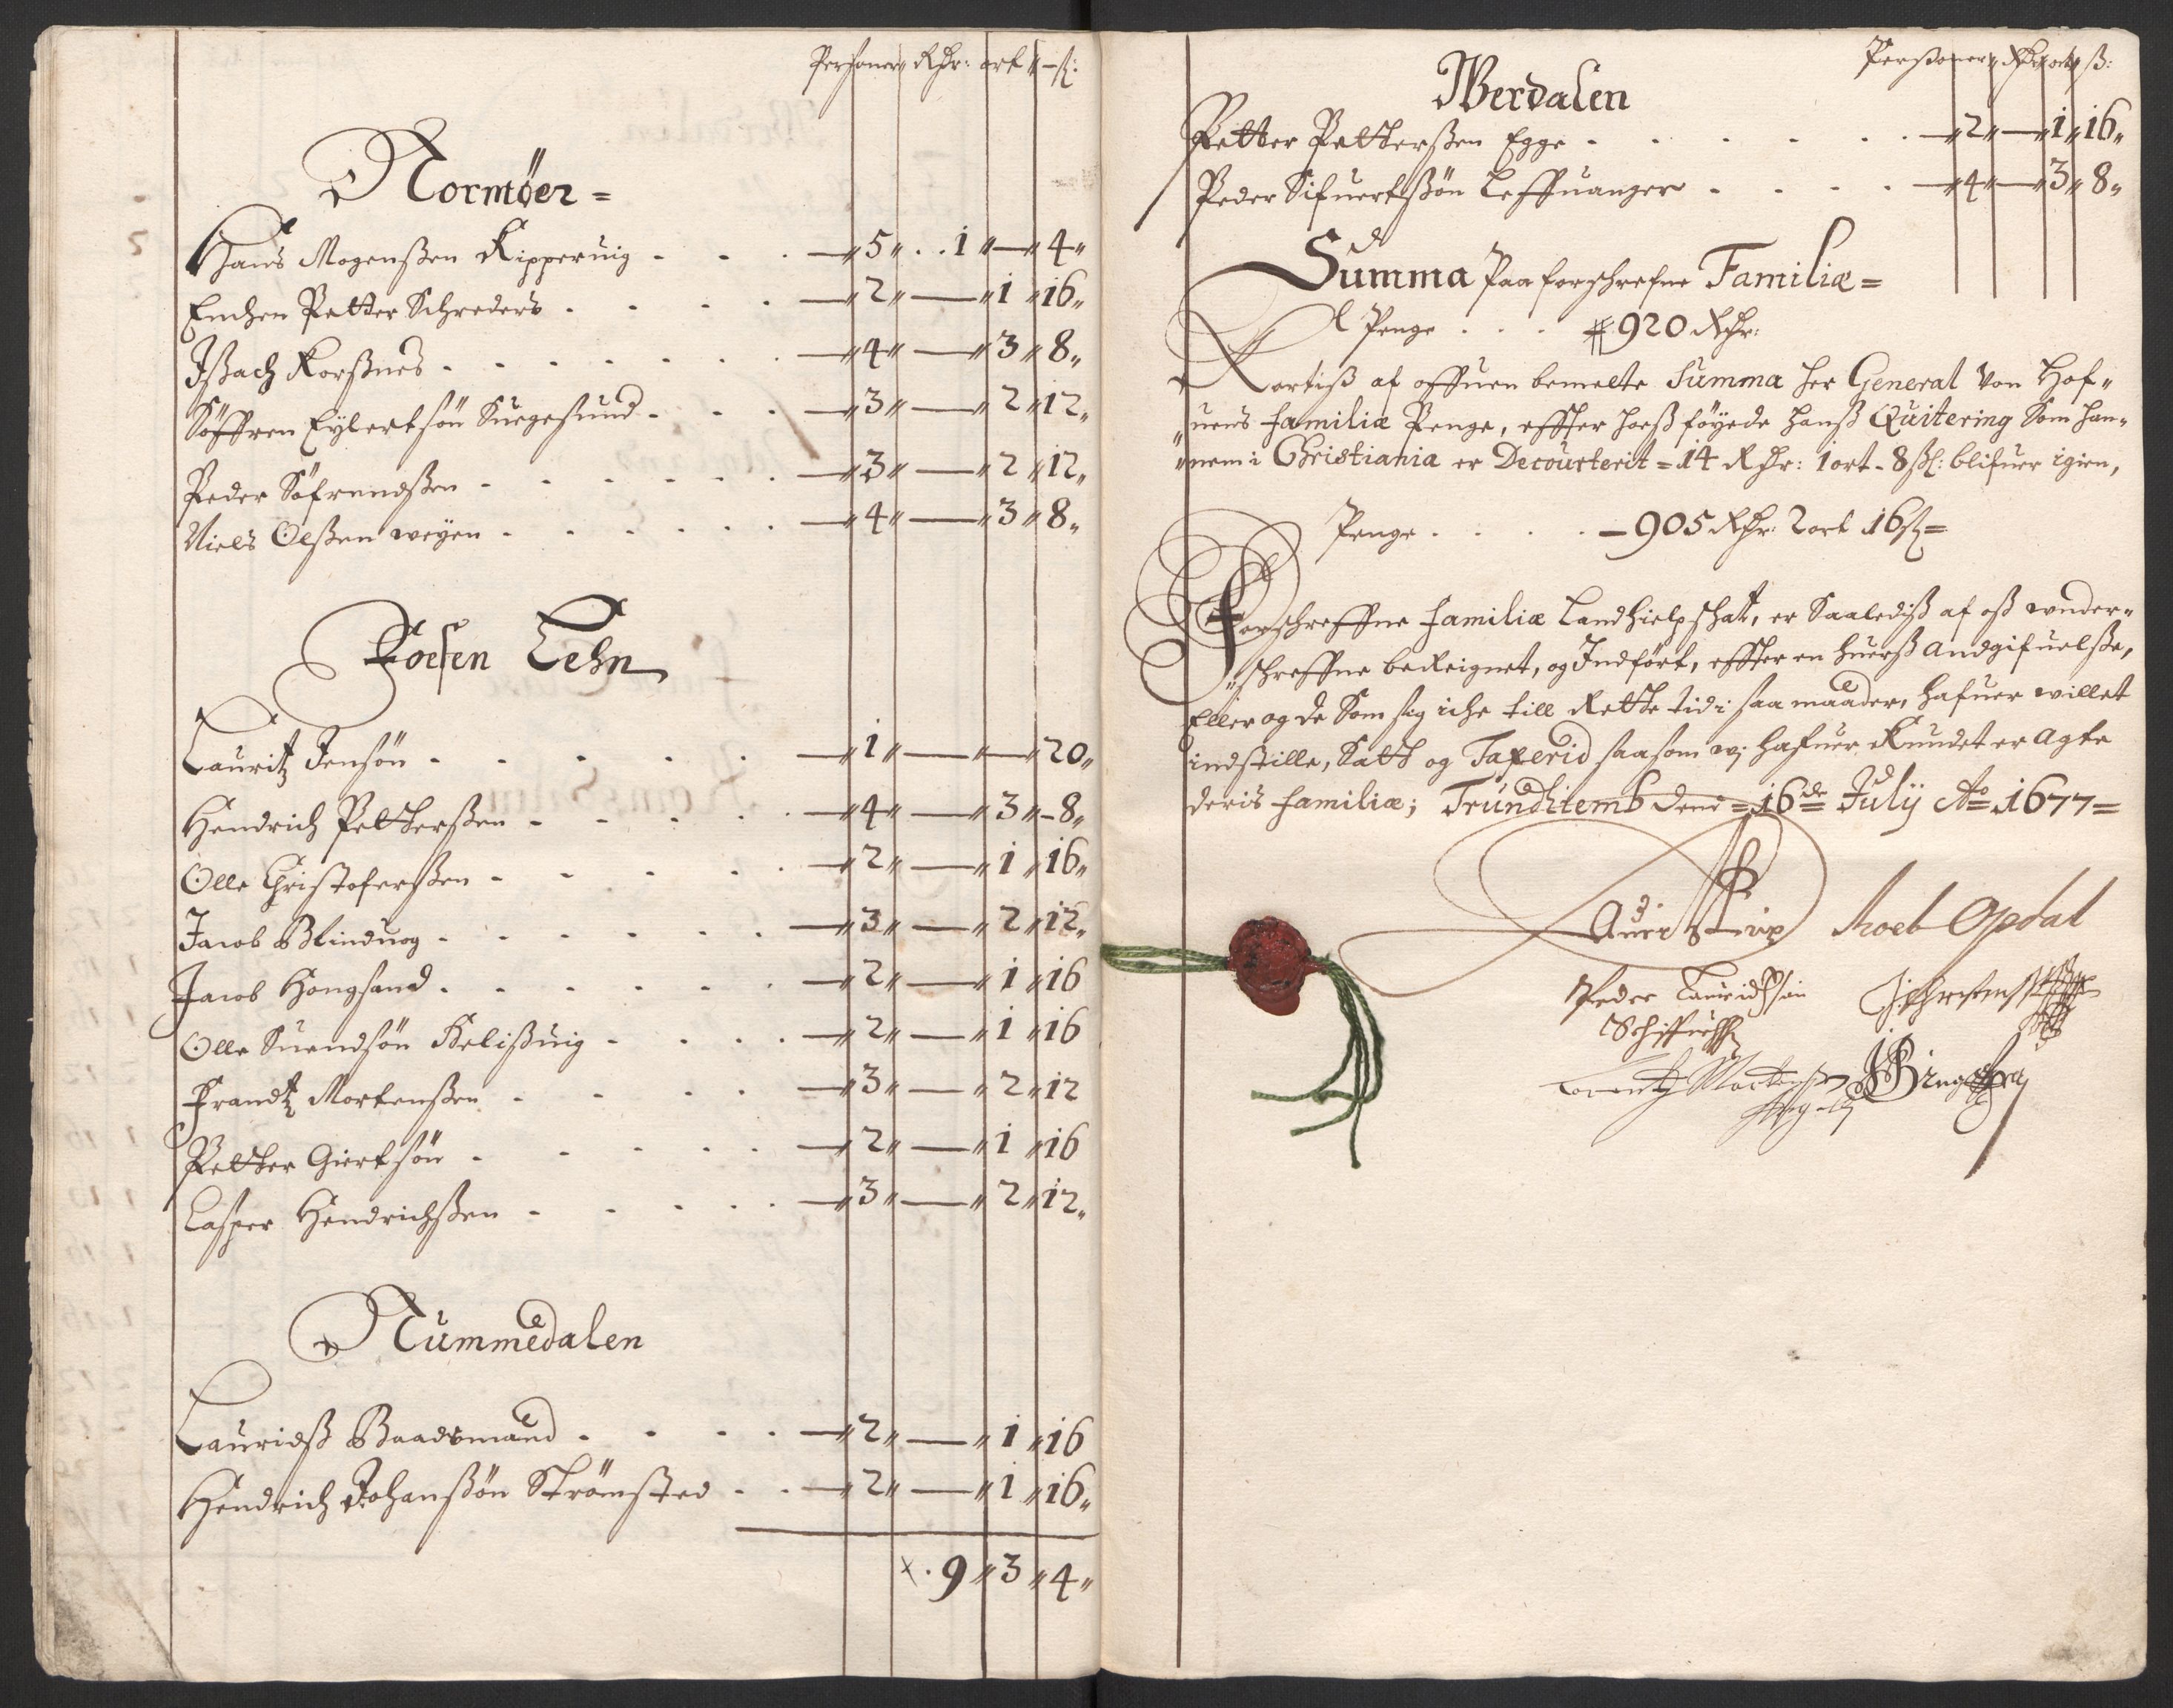 Personer Rdr: ort ß:
Normöer =
Hans Mogenßen Kipperuig - - - 5 . . 1 — 4
Enchen Petter Schreders . - - - 2 — 1 16
Jßach Korßnes - - - - - - - 4 — 3 8
Söffren Eylertsön Suegesund - - - 3 — 2 12
Peder Söfrendßen - - - - - - 3 — 2 12
Niels Olßen weyen - - - - - 4 — 3 8
Foesen Lehn
Lauritz Jensön - - - - - - 1 — — 20
Hendrich Petterßen - - - - - 4 — 3 8
Olle Christoferßen - - - - - - 2 — 1 16
Jacob Blinduog - - - - - - 3 — 2 12
Jacob Hongsand - - - - - - - 2 — 1 16
Olle Suendsön Kelißuig - - - - 2 — 1 16
Frandtz Mortenßen - - - - 3 — 2 12
Petter Giertsön - - - - - - 2 — 1 16
Casper Hendrichßen - - - - - 3 — 2 12
Nummedalen
Lauridß Baadsmand - - - - 2 — 1 16
Hendrich Johanßön Strömsted - - 2 — 1 16
x . 9 3 4
Personer Rdr ort ß:
Werdalen
Petter Petterßen Egge - - - - - - 2 — 1 16
Peder Sifuertßön Leffuanger - - - - 4 — 3 8
Summa Paa forschrefne Familiæ =
Penge - - - 920 Rdr:
Kortiß af offuen bemelte Summa her General Von Hof„
„uens familiæ Penge, effter hoeß föyede hanß Quitering Som han„
„nem i Christiania er Decourterit = 14 Rdr: 1 ort - 8 ßl: blifuer igien,
Penge - - - - 905 Rdr: 2 ort 16 ß =
Forschreffne familiæ Landhielpschat, er Saalediß af oß wnder„
„schreffne beReignet, og Indfört, effter en huerß andgifuelße,
Eller og de Som sig iche till Rette tid i saa maader, hafuer willet
indstille, Satt og Taxerid saa som wj hafuer Kundet er agte
deris familiæ; Trundhemb Dend = 16de July Ao 1677 =
Opdal
Peder Lauridsøn
Schiffuehß
Lorentz Mortensen